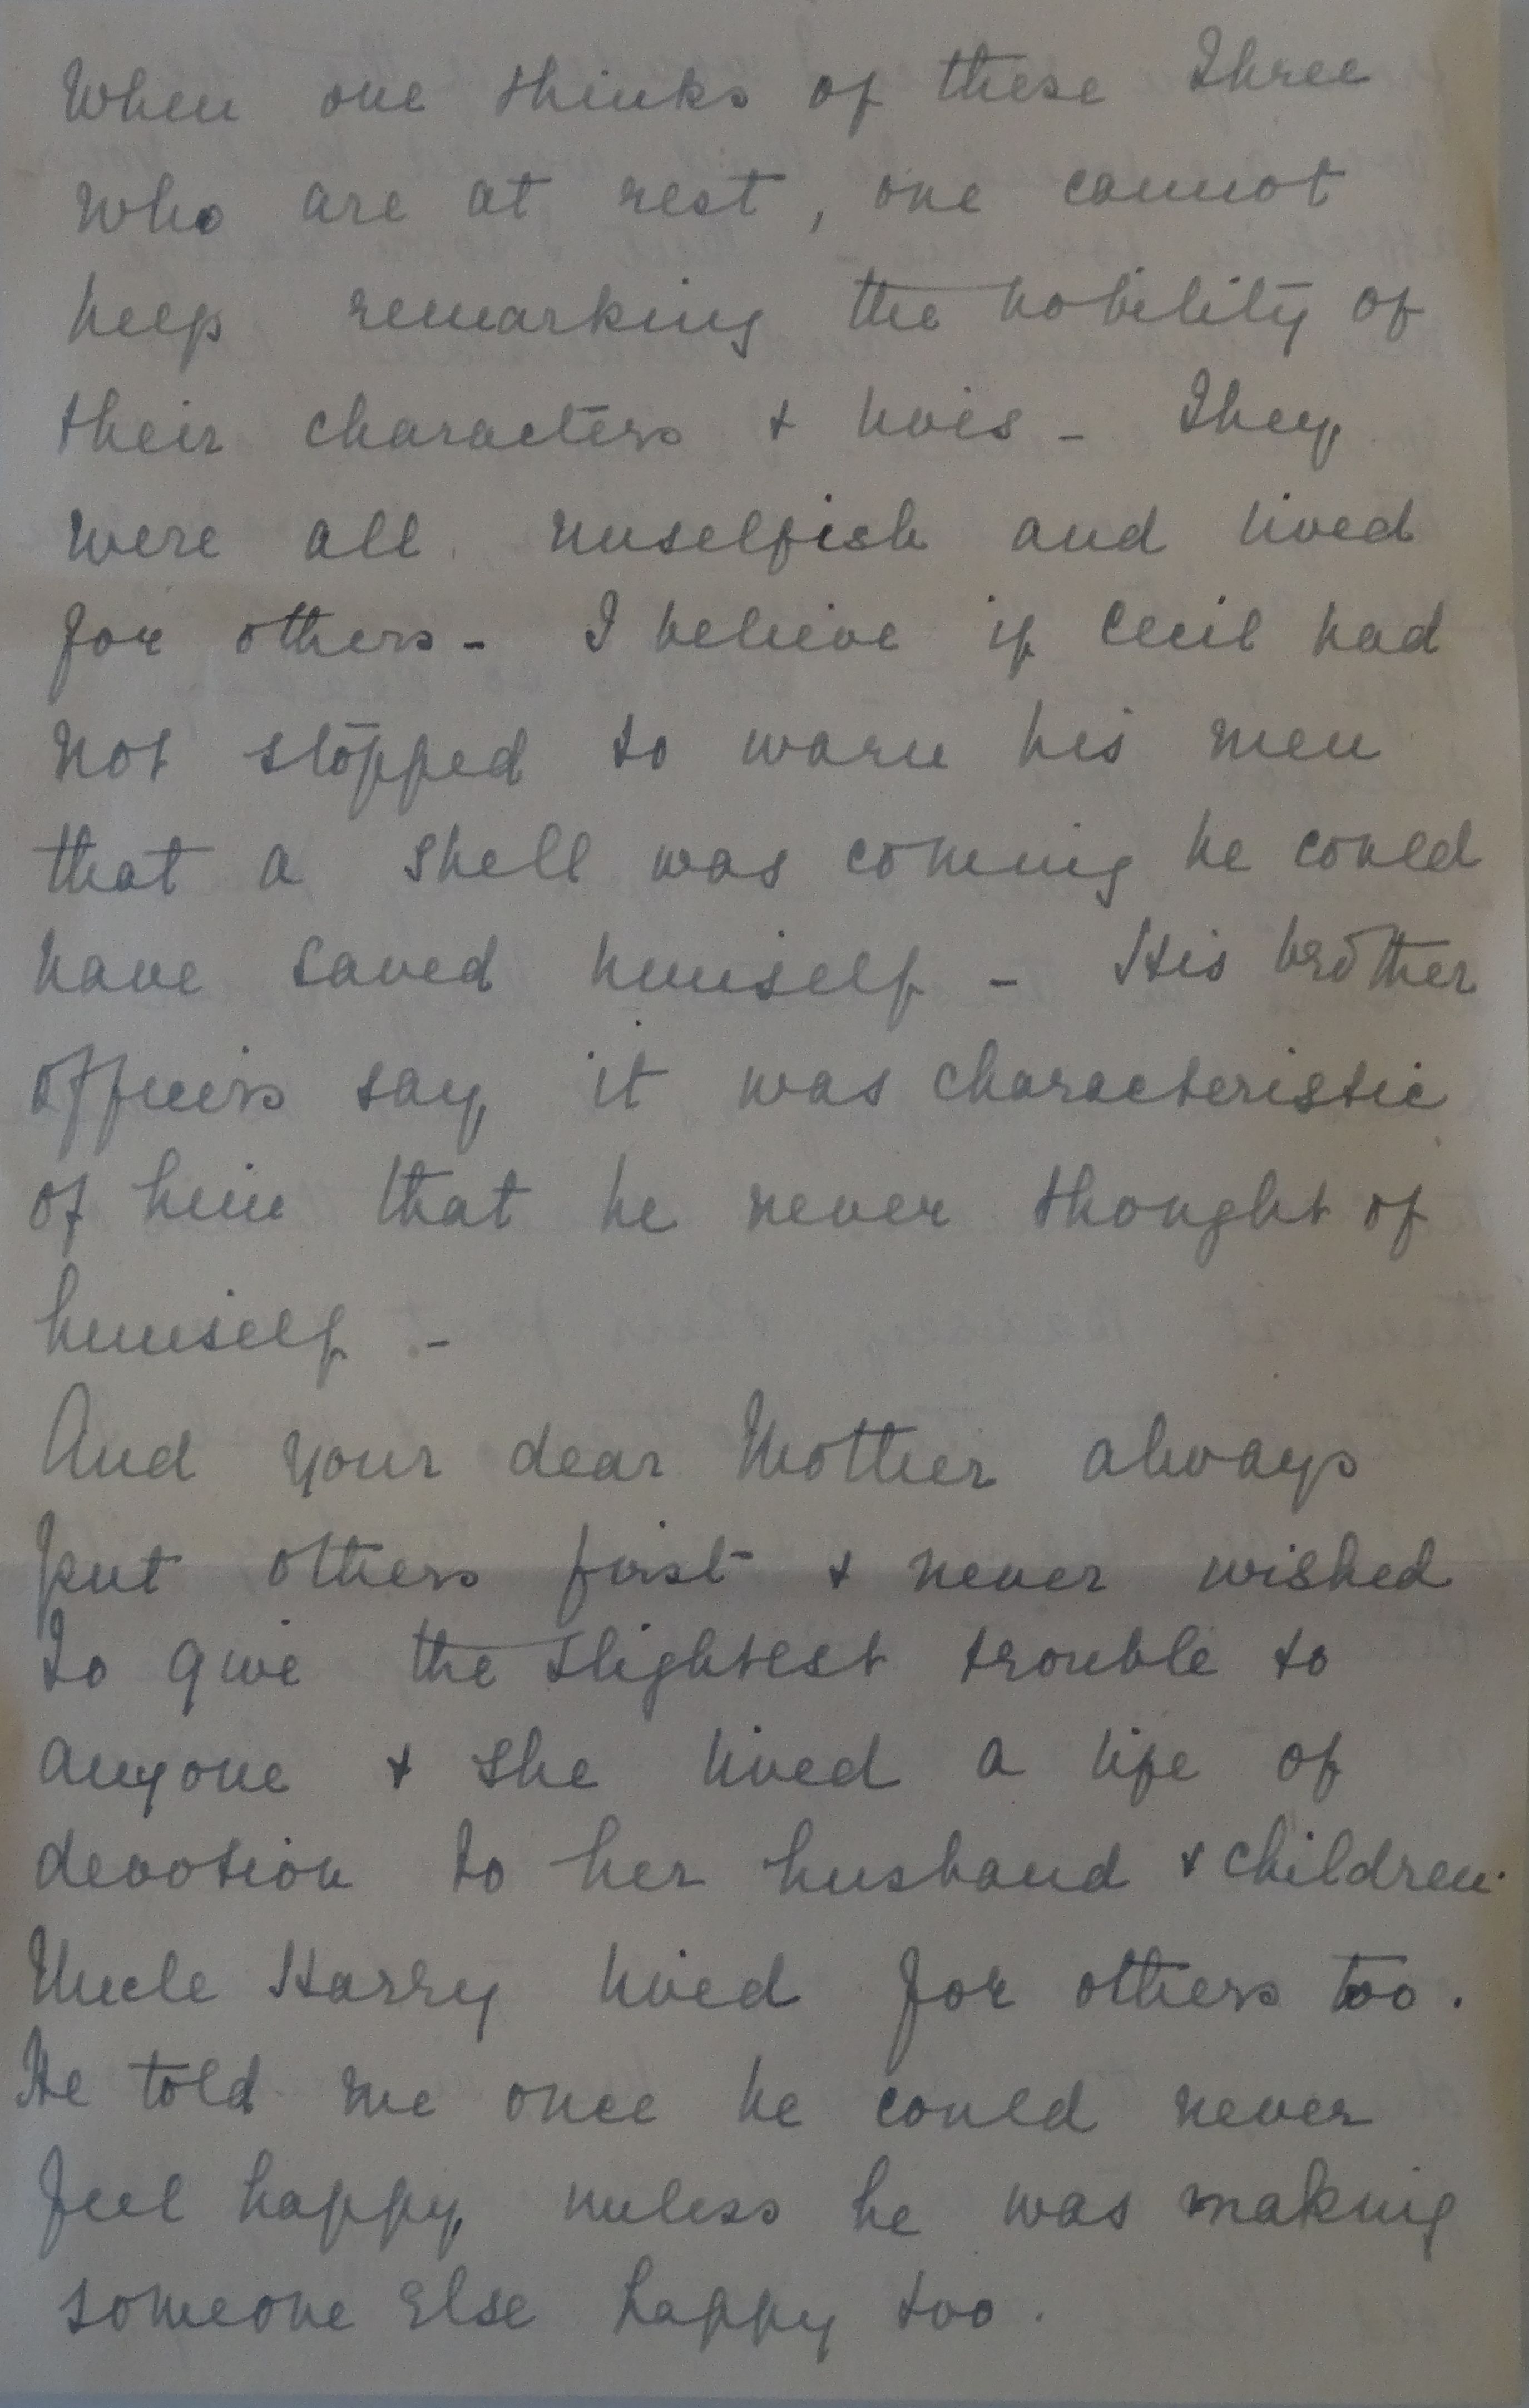 When one thinks of these Three
who are at rest, one cannot
help remarking the nobility of
their characters & lives - They
were all unselfish and lived
for others - I believe if Cecil had
not stopped to warn his men
that a shell was coming he could
have saved himself - His brother
officers say it was characteristic
of him that he never thought of
himself -
And your dear Mother always
put others first & never wished
to give the slightest trouble to
anyone & she lived a life of
devotion to her husband & children.
Uncle Harry lived for others too.
He told me once he could never
feel happy unless he was making
someone else happy too.